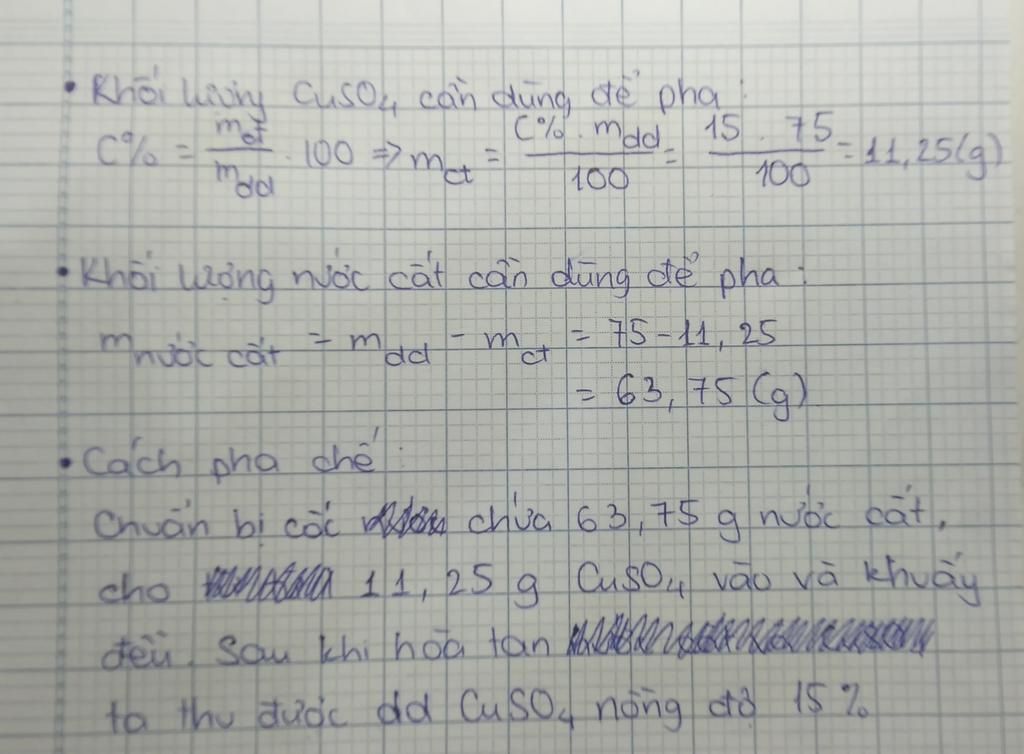 • Khối lượng CuSO4 cần dùng để pha :
C% = mct/mdd . 100 => mct = C% . mdd/100 = 15 . 75/100 = 11,25(g)
• Khối lượng nước cất cần dùng để pha :
mnước cất = mdd - mct = 75 - 11,25
= 63,75 (g)
• Cách pha chế :
Chuẩn bị cốc chứa 63,75 g nước cất,
cho 11,25 g CuSO4 vào và khuấy
đều. Sau khi hòa tan
ta thu được dd CuSO4 nồng độ 15%